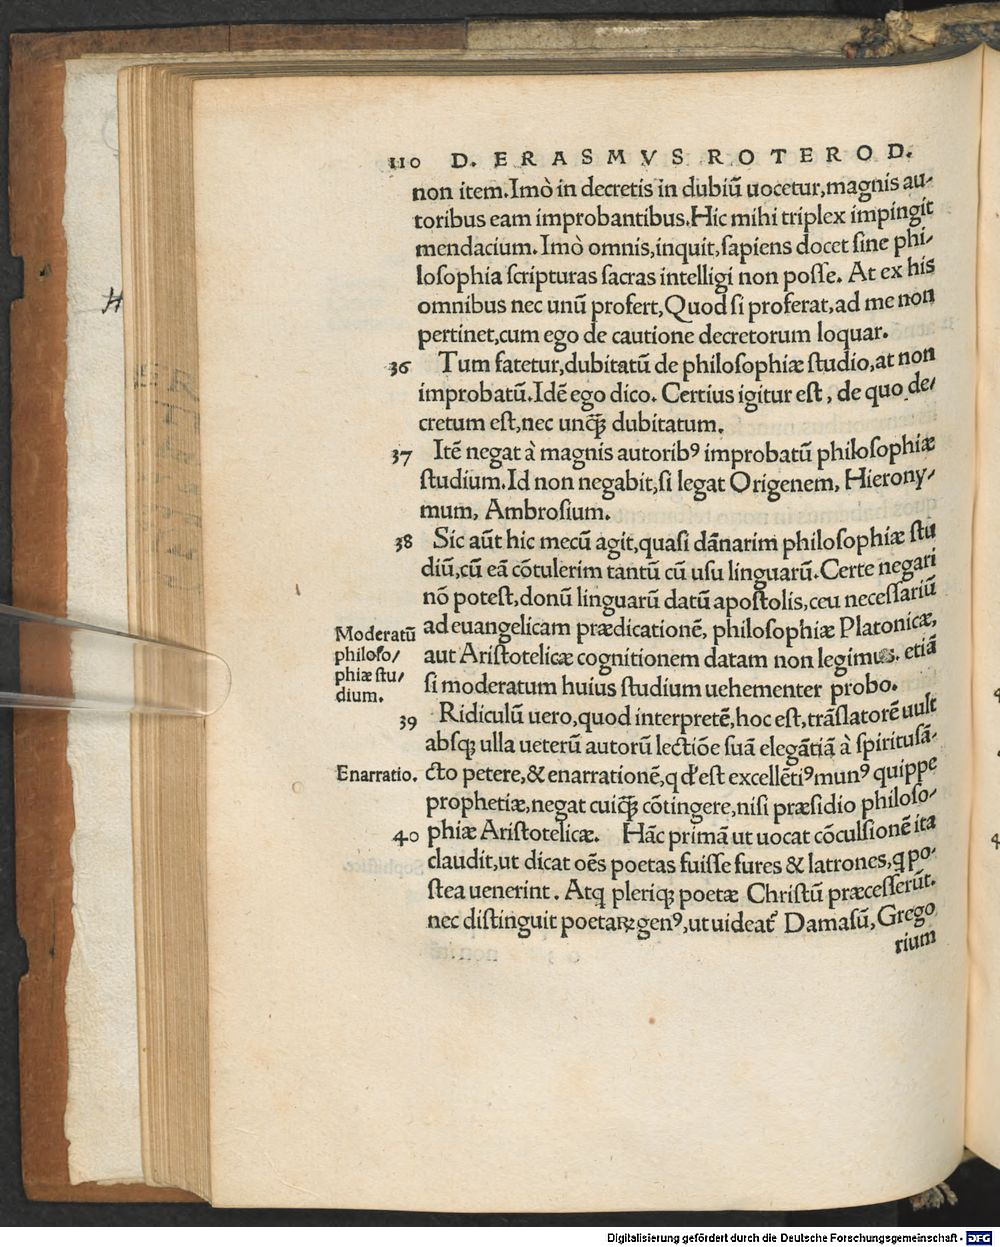 110 D. ERASMVS ROTEROD.
non item. Imò in decretis in dubiũ uocetur, magnis au-
toribus eam improbantibus. Hic mihi triplex impingit
mendacium. Imò omnis, inquit, sapiens docet sine phi-
losophia scripturas sacras intelligi non posse. At ex his
omnibus nec unũ profert, Quod si proferat, ad me non
pertinet, cum ego de cautione decretorum loquar.
36 Tum fatetur, dubitatũ de philosophiæ studio, at non
improbatũ. Idẽ ego dico. Certius igitur est, de quo de-
cretum est, nec unq̃ꝫ dubitatum.
37 Itẽ negat à magnis autoribꝰ improbatũ philosophiæ
studium. Id non negabit, si legat Origenem, Hierony-
mum, Ambrosium.
38 Sic aũt hic mecũ agit, quasi dãnarim philosophiæ stu
diũ, cũ eã cõtulerim tantũ cũ usu linguarũ. Certe negari
nõ potest, donũ linguarũ datũ apostolis, ceu necessariũ
Moderatũ
philoso-
phiæ stu-
dium.
ad euangelicam prædicationẽ, philosophiæ Platonicæ,
aut Aristotelicæ cognitionem datam non legimus. etiã
si moderatum huius studium uehementer probo.
39 Ridiculũ uero, quod interpretẽ, hoc est, trãslatorẽ uult
absqꝫ ulla ueterũ autorũ lectiõe suã elegãtiã à spiritusã-
Enarratio. cto petere, & enarrationẽ, q d'est excellẽtiꝰ munꝰ quippe
prophetiæ, negat cuiq̃ꝫ cõtingere, nisi præsidio philoso-
40 phiæ Aristotelicæ. Hãc primã ut uocat cõculsionẽ ita
claudit, ut dicat oẽs poetas fuisse fures & latrones, q po-
stea uenerint. Atq pleriqꝫ poetæ Christũ præcesserũt.
nec distinguit poetaꝝ genꝰ, ut uideat' Damasũ, Grego
rium
H
Digitalisierung gefördert durch die Deutsche Forschungsgemeinschaft - DFG